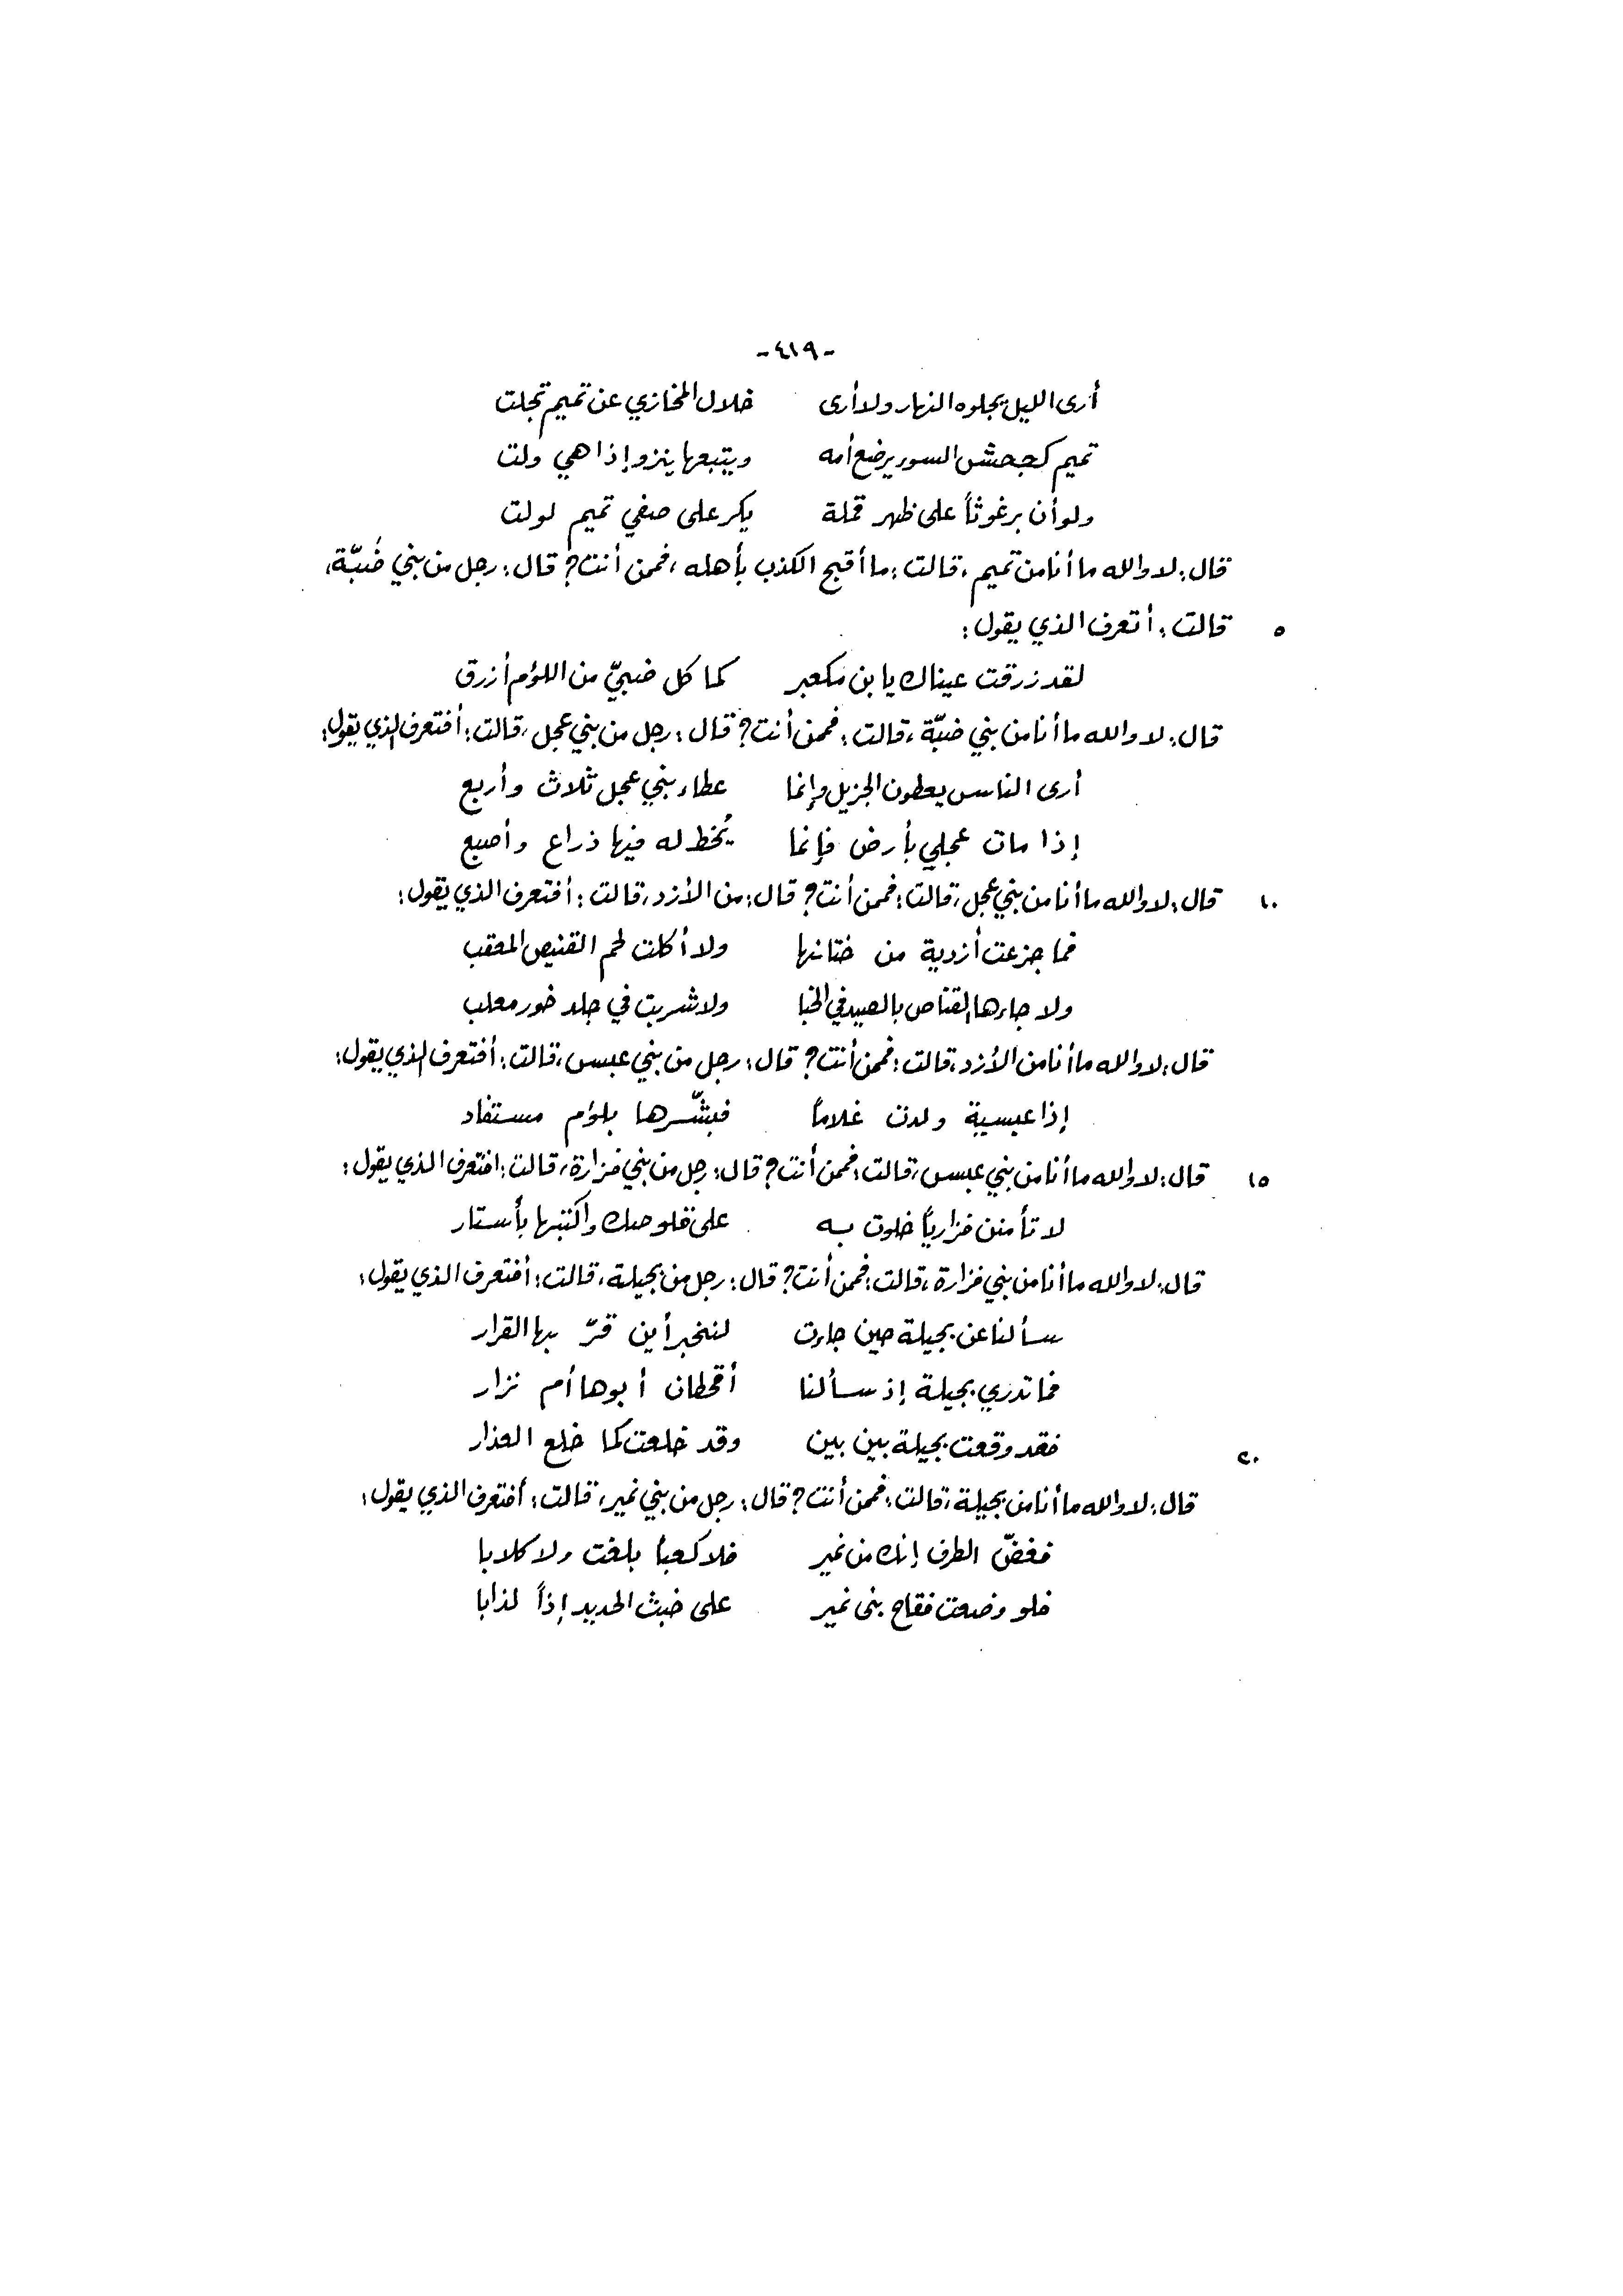 -٤١٩-
أرى الليل يجلوه النهار ولا أرى خلال المخازي عن تميم تجلت
تميم كجحش السوء يرضع أمه ويتبعها ينزو إذا هي ولت
ولو أن برغوثاً على ظهر قملة يكر على صفي تميم لولت
قال: لا والله ما أنا من تميم، قالت: ما أقبح الكذب بأهله، فمن أنت؟ قال: رجل من بني ضُبّة،
٥ قالت: أتعرف الذي يقول:
لقد زرقت عيناك يا بن مكعبر كما كل ضبيّ من اللؤم أزرق
قال: لا والله ما أنا من بني ضبّة، قالت: فممن أنت؟ قال: رجل من بني عجل، قالت: أفتعرف الذي يقول:
أرى الناس يعطون الجزيل وإنما عطاء بني عجل ثلاث وأربع
إذا مات عجلي بأرض فإنما يُخط له فيها ذراع وأصبع
١٠ قال: لا والله ما أنا من بني عجل، قالت: فممن أنت؟ قال: من الأزد، قالت: أفتعرف الذي يقول:
فما جزعت أزدية من ختانها ولا أكلت لحم القنيص المعقب
ولا جاءها القناص بالصيد في الخبا ولا شربت في جلد خور معلب
قال: لا والله ما أنا من الأزد، قالت: فممن أنت؟ قال: رجل من بني عبس، قالت: أفتعرف الذي يقول:
إذا عبسية ولدت غلاماً فبشّرها بلؤم مستفاد
١٥ قال: لا والله ما أنا من بني عبس، قالت: فممن أنت؟ قال: رجل من بني فزارة، قالت: افتعرف الذي يقول:
لا تأمنن فزارياً خلوت به على قلوصك واكتبها بأستار
قال: لا والله ما أنا من بني فزارة، قالت: فممن أنت؟ قال: رجل من بجيلة، قالت: أفتعرف الذي يقول:
سألنا عن بجيلة حين جاءت لنخبر أين قرّ بها القرار
فما تدري بجيلة إذ سألنا أقحطان أبوها أم نزار
٢٠ فقد وقعت بجيلة بين بين وقد خلعت كما خلع العذار
قال: لا والله ما أنا من بجيلة، قالت: فممن أنت؟ قال: رجل من بني نمير، قالت: أفتعرف الذي يقول:
فغضّ الطرف إنك من نمير فلا كعباً بلغت ولا كلابا
فلو وضعت فقاح بنى نمير على خبث الحديد إذاً لذابا